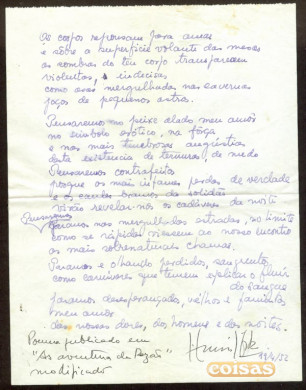 Os corpos repousam para amar
e sôbre a superfície volante das mesas
as sombras do teu corpo transparecem
violentas, indecisas
como asas mergulhadas nas cavernas
jogos de pequenos astros.
Pensaremos no peixe alado meu amor
no símbolo exótico, na fôrça
e nas mais tenebrosas angústias
desta existência de ternura, de medo
Pensaremos contrafeitos
porque os mais infames perdem de verdade
e
virão revelar-nos os cadáveres da noite
Pensaremos nas mergulhadas estradas, no limite
como se rápidas viessem ao nosso encontro
as mais sobrenaturais chamas.
e chamo perdidos, sangrentos
como carnívoros que temem
do sangue
faremos desesperançados, velhos e
meu amor
das nossas dores, dos homens e das noites.
Poema publicado em
"As aventura da Razão"
modificado
/52
coisas